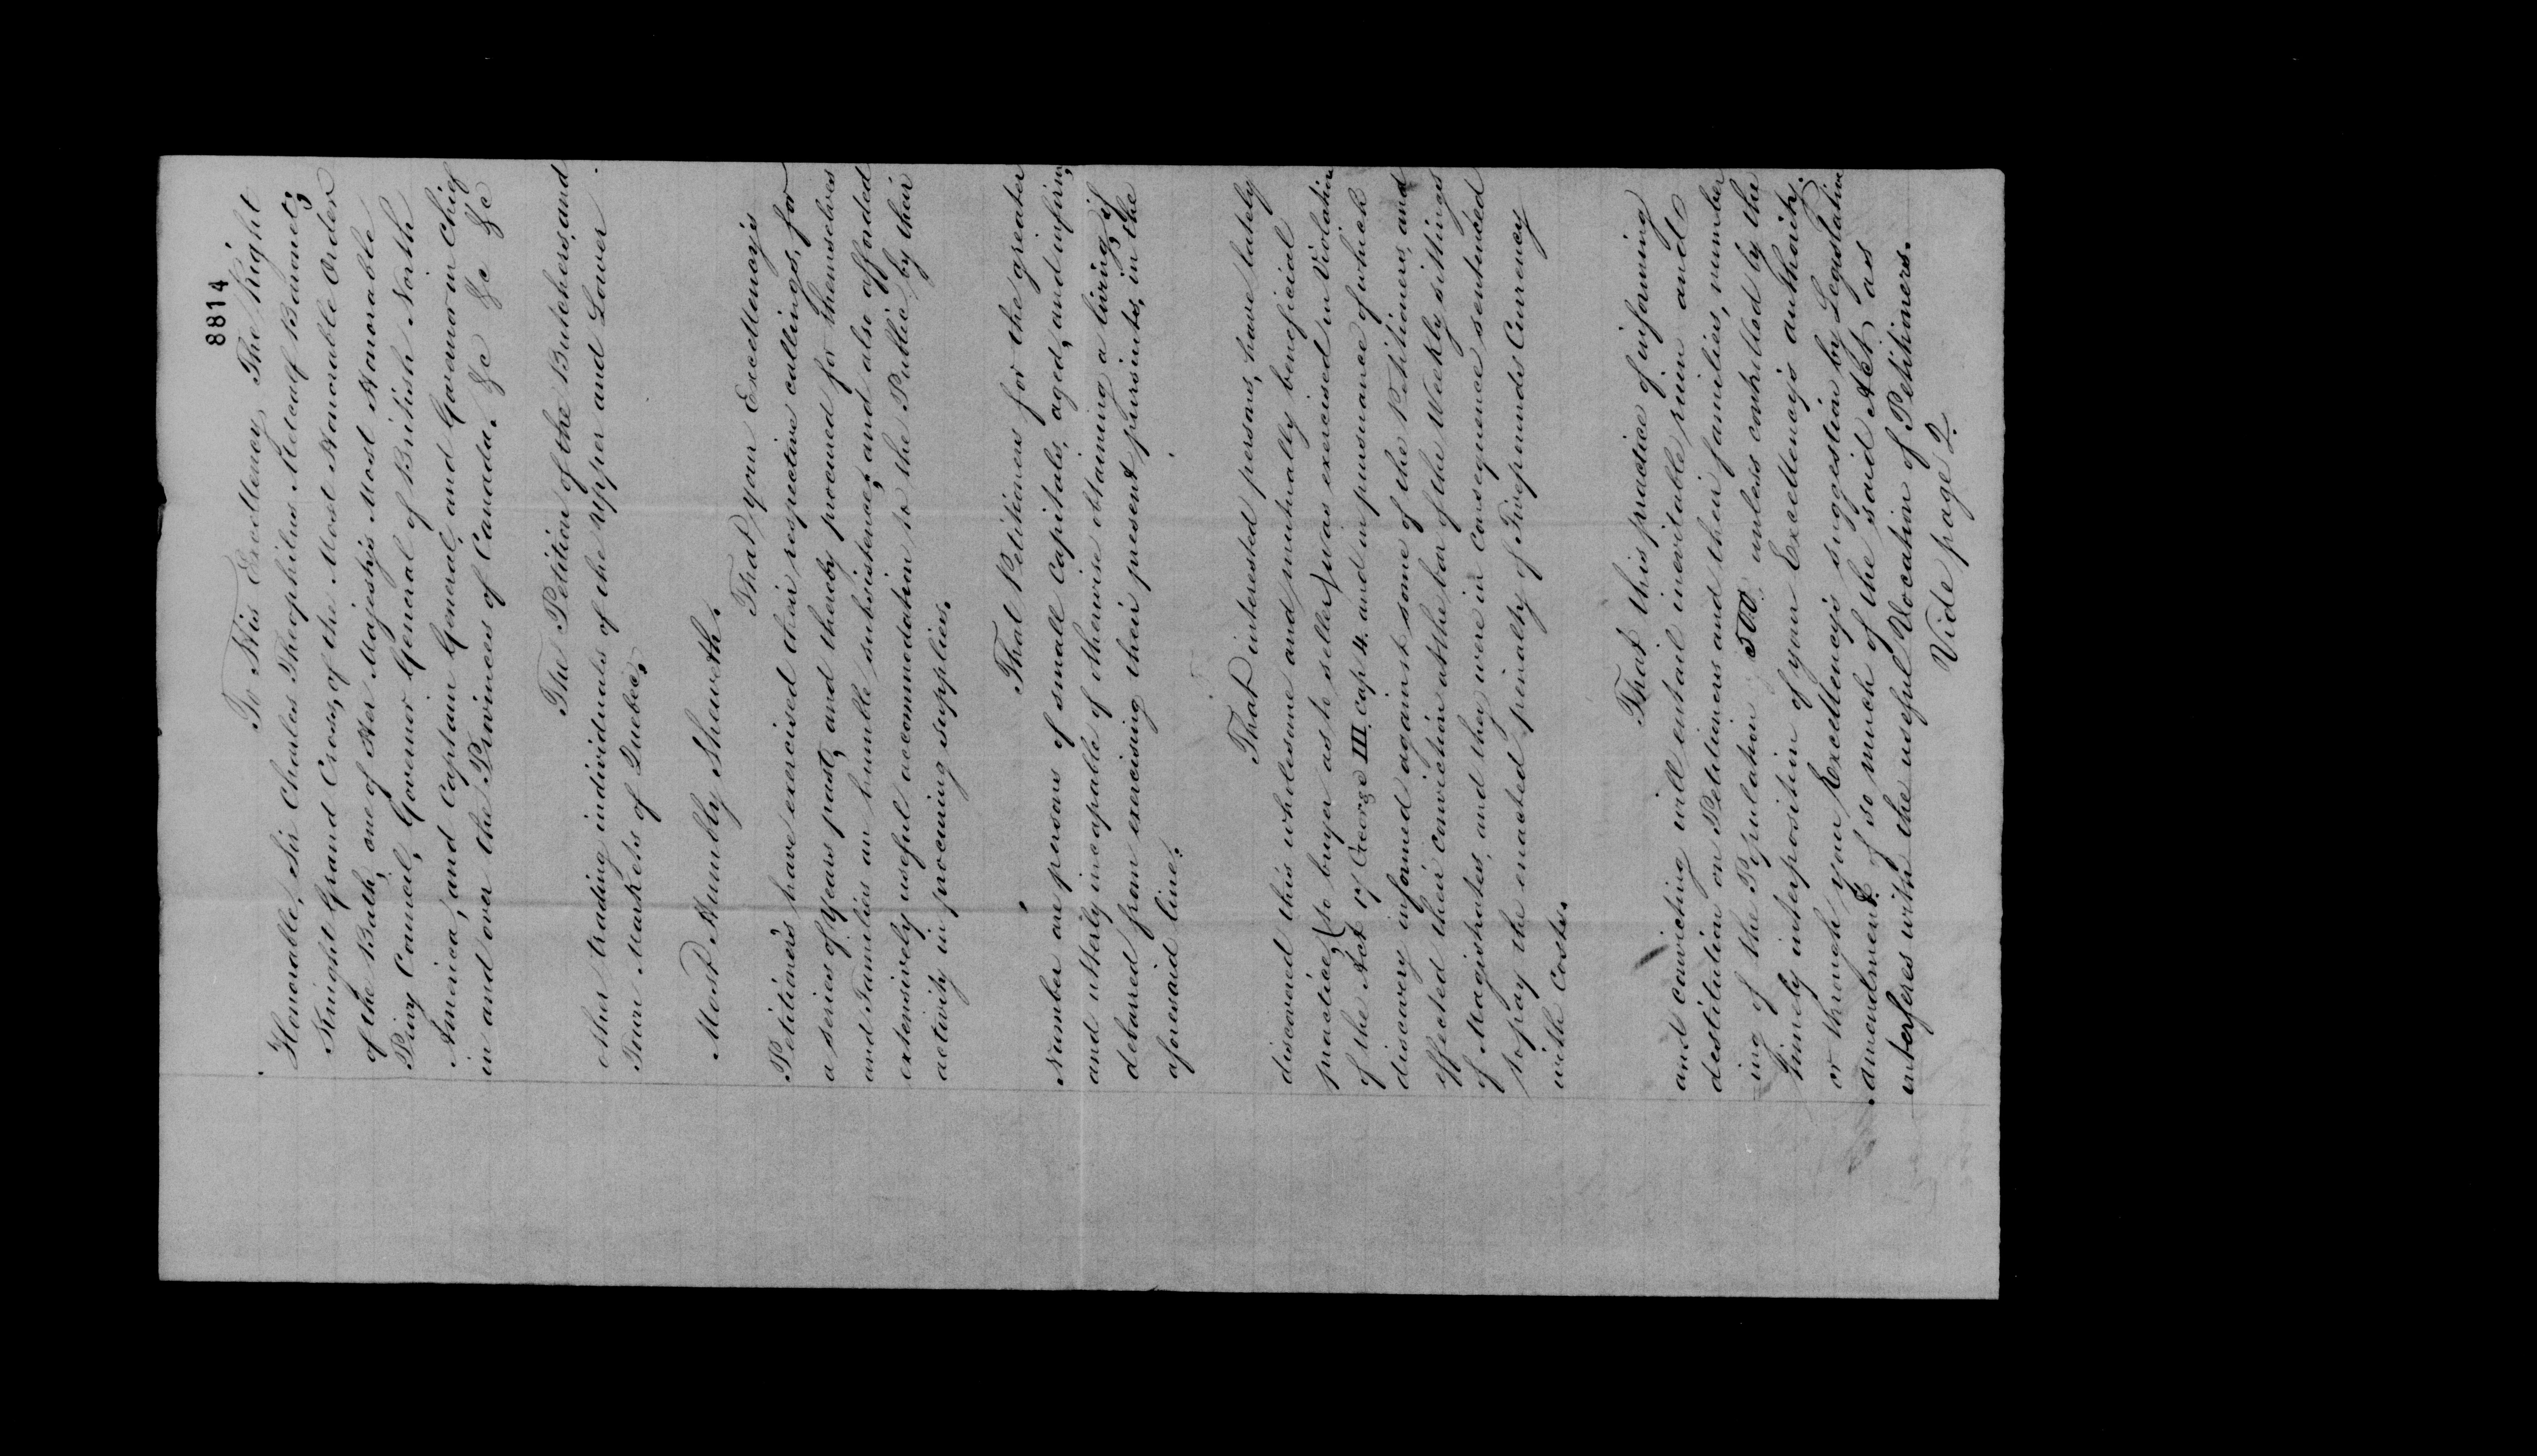 8814
To His Excellency The Right
Honorable, Sir Charles Theophilus Metcalf Baronet;
Knight Grand Cross, of the Most Honorable Order
of the Bath, one of Her Majesty's Most Honorable
Privy Council, Governor General of British North
America, and Captain General, and Governor in Chief
in and over the Provinces of Canada. &c &c &c &c
The Petition of the Butchers, and
other trading individuals of the Upper and Lower
Town Markets of Quebec,
Most Humbly Sheweth.
That your Excellency's
Petitioners have exercised their respective callings, for
a series of Years past, and thereby procured for themselves
and Families an humble subsistence, and also afforded
extensively useful accommodation to the Public by their
activity in procuring supplies.
That Petitioners for the greater
Number are persons of small Capitals, aged, and infirm,
and utterly incapable of otherwise obtaining a living, if
debarred from exercising their present pursuits, in the
aforesaid line.
That interested persons, have lately
discovered this wholesome and mutually beneficial
practice, (so buyer as to seller) was exercised in Violation
of the Act 17 George III. cap 4. and in pursuance of which
discovery informed against some of the Petitioners, and
effected their conviction at the bar of the Weekly sittings
of Magistrates, and they were in consequence sentenced
to pay the enacted penalty of Five pounds Currency
with Costs.
That this practice of informing
and convicting will entail inevitable ruin and
destitution on Petitioners and their families, number
ing of the Population 500. unless controlled by the
timely interposition of your Excellency's authority.
or through your Excellency's suggestion by Legislative
Amendment of so much of the said Act, as
interferes with the useful Vocation of Petitioners.
Vide page 2.